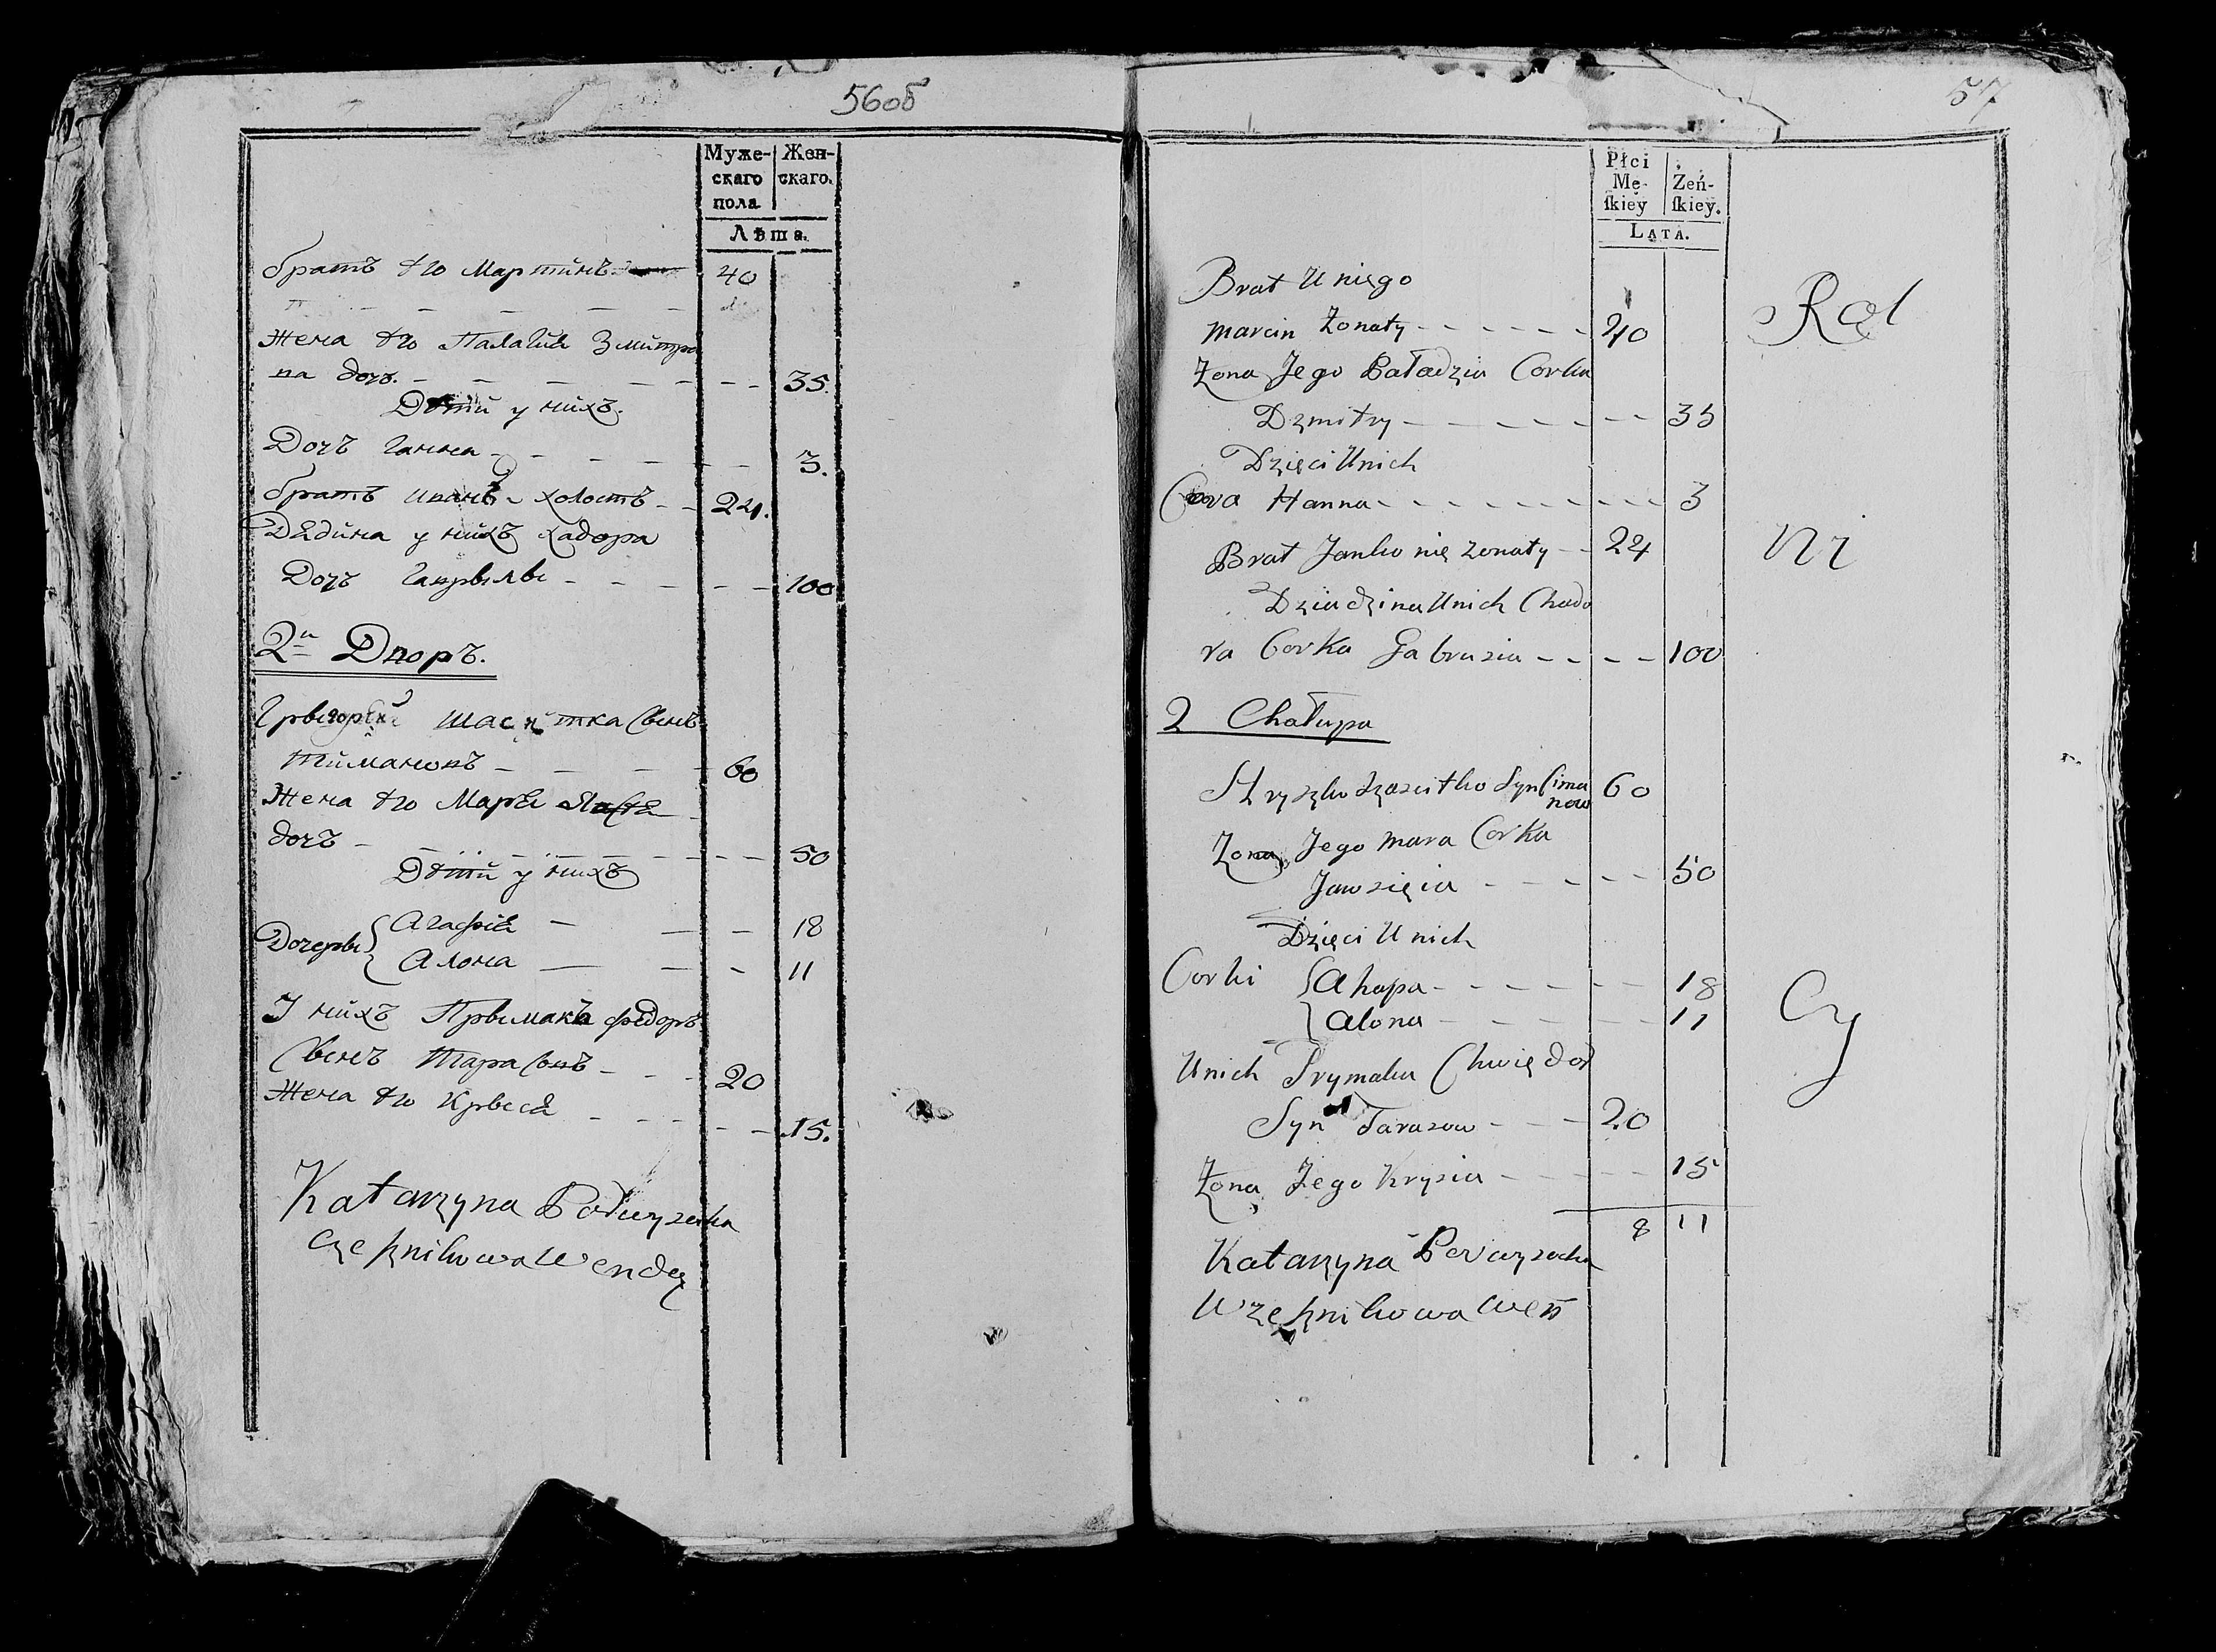 56об
Муже-
скаго
пола
Жен-
скаго.
Лѣта.
братъ его Мартинъ 40
жена его Палагия Змитро
ва дочь. 35.
Дѣти у нихъ.
Дочь Ганна 3.
братъ Иванъ холостъ 24.
Дядина у нихъ Хадора
Дочь Гаврылы 100
2й Дворъ.
Грыгорый Шаситка Сынъ
Тимановъ 60
Жена его Маря
дочь 50
Дѣти у нихъ
Дочеры { Агафія 18
Алона 11
У нихъ Прымакъ Федоръ
Сынъ Тарасовъ 20
Жена его Крыся 15.
Katarzyna
Czesznikowa Wendz
57
Płci
Mę-
ſkiey
Żeń-
ſkiey.
LATA.
Brat U niego
Marcin Żonaty 40
Żona Jego Paładzia Corka
Dzmitry 35
Dzieci U nich
Cora Hanna 3
Brat Janko nie żonaty 24
Dziadzina U nich Chado
ra Corka Gabrusia 100
2 Chałupa
Hryszko Szasitko Syn Cima
now 60
Żona Jego Mara Corka
Jawsieia 50
Dzieci U nich
Corki { Ahapa 18
Alona 11
U nich Prymaka Chwiedor
Syn Tarasow 20
Żona Jego Krysia 15
8 11
Katarzyna
Rąl
Ni
Cy